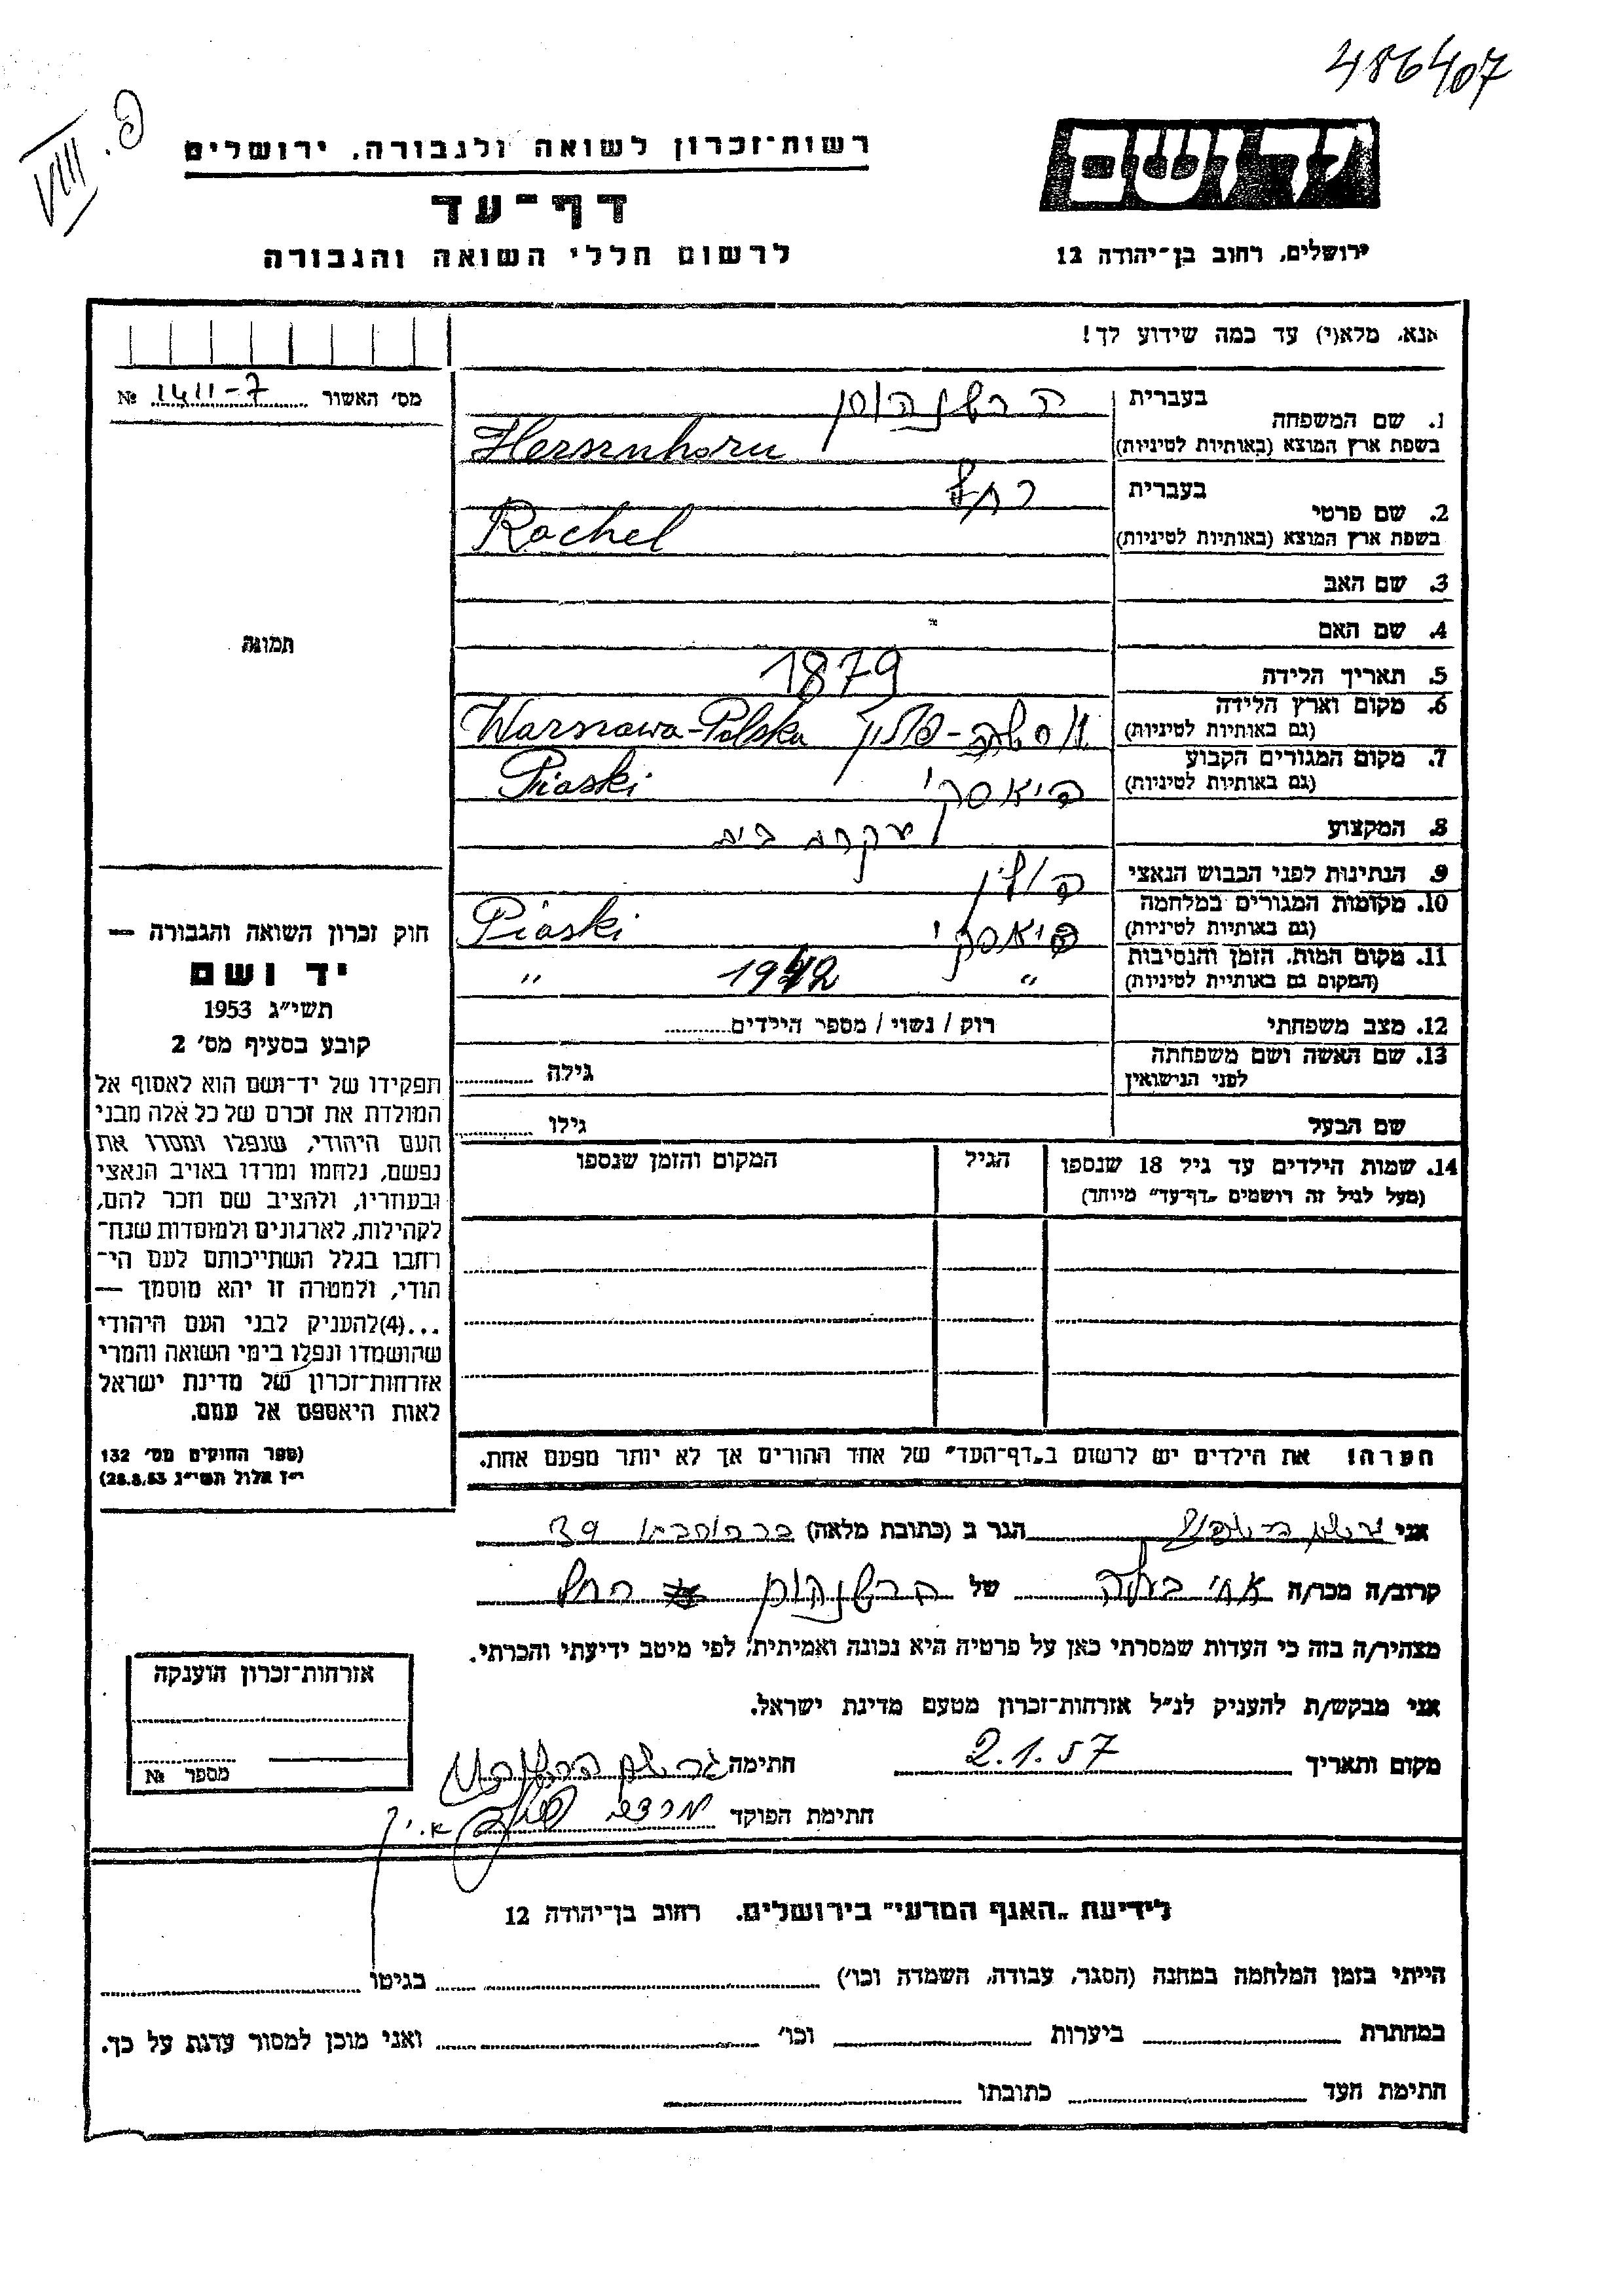 486407
VIII פ.
יד ושם
ירושלים, רחוב בן־יהודה 12
רשות־זכרון לשואה ולגבורה, ירושלים
דף־עד
לרשום חללי השואה והגבורה
אנא, מלא(י) עד כמה שידוע לך!
מס' האשור 1411-7 №
1. שם המשפחה
בעברית הרשנהורן
בשפת ארץ המוצא (באותיות לטיניות) Hersenhorn
2. שם פרטי
בעברית רחל
בשפת ארץ המוצא (באותיות לטיניות) Rachel
3. שם האב
4. שם האם
5. תאריך הלידה 1879
6. מקום וארץ הלידה
(גם באותיות לטיניות) ורשה-פולין Warszawa-Polska
7. מקום המגורים הקבוע
(גם באותיות לטיניות) פיאסקי Piaski
8. המקצוע עקרת בית
9. הנתינות לפני הכבוש הנאצי פולין
10. מקומות המגורים במלחמה
(גם באותיות לטיניות) פיאסקי Piaski
11. מקום המות, הזמן והנסיבות
(המקום גם באותיות לטיניות) " 1942 "
12. מצב משפחתי רוק / נשוי / מספר הילדים
13. שם האשה ושם משפחתה
לפני הנישואין גילה
שם הבעל גילו
14. שמות הילדים עד גיל 18 שנספו הגיל המקום והזמן שנספו
(מעל לגיל זה רושמים „דף־עד" מיוחד)
הערה! את הילדים יש לרשום ב„דף־העד" של אחד ההורים אך לא יותר מפעם אחת.
תמונה
חוק זכרון השואה והגבורה —
יד ושם
תשי"ג 1953
קובע בסעיף מס' 2
תפקידו של יד־ושם הוא לאסוף אל
המולדת את זכרם של כל אלה מבני
העם היהודי, שנפלו ומסרו את
נפשם, נלחמו ומרדו באויב הנאצי
ובעוזריו, ולהציב שם וזכר להם,
לקהילות, לארגונים ולמוסדות שנח־
רחבו בגלל השתייכותם לעם הי־
הודי, ולמטרה זו יהא מוסמך —
...(4)להעניק לבני העם היהודי
שהושמדו ונפלו בימי השואה והמרי
אזרחות־זכרון של מדינת ישראל
לאות היאספם אל עמם.
(ספר החוקים מס' 132
י"ז אלול תשי"ג 28.8.53)
אני הגר ב (כתובת מלאה) 39
קרוב/ה מכר/ה אחי בעלה של הרשנהורן רחל
מצהיר/ה בזה כי העדות שמסרתי כאן על פרטיה היא נכונה ואמיתית, לפי מיטב ידיעתי והכרתי.
אני מבקש/ת להעניק לנ"ל אזרחות־זכרון מטעם מדינת ישראל.
מקום ותאריך 2.1.57 חתימה
חתימת הפוקד
אזרחות־זכרון הוענקה
מספר №
לידיעת „האגף המדעי" בירושלים. רחוב בן־יהודה 12
הייתי בזמן המלחמה במחנה (הסגר, עבודה, השמדה וכו') בגיטו
במחתרת ביערות וכו' ואני מוכן למסור עדות על כך.
חתימת העד כתובתו